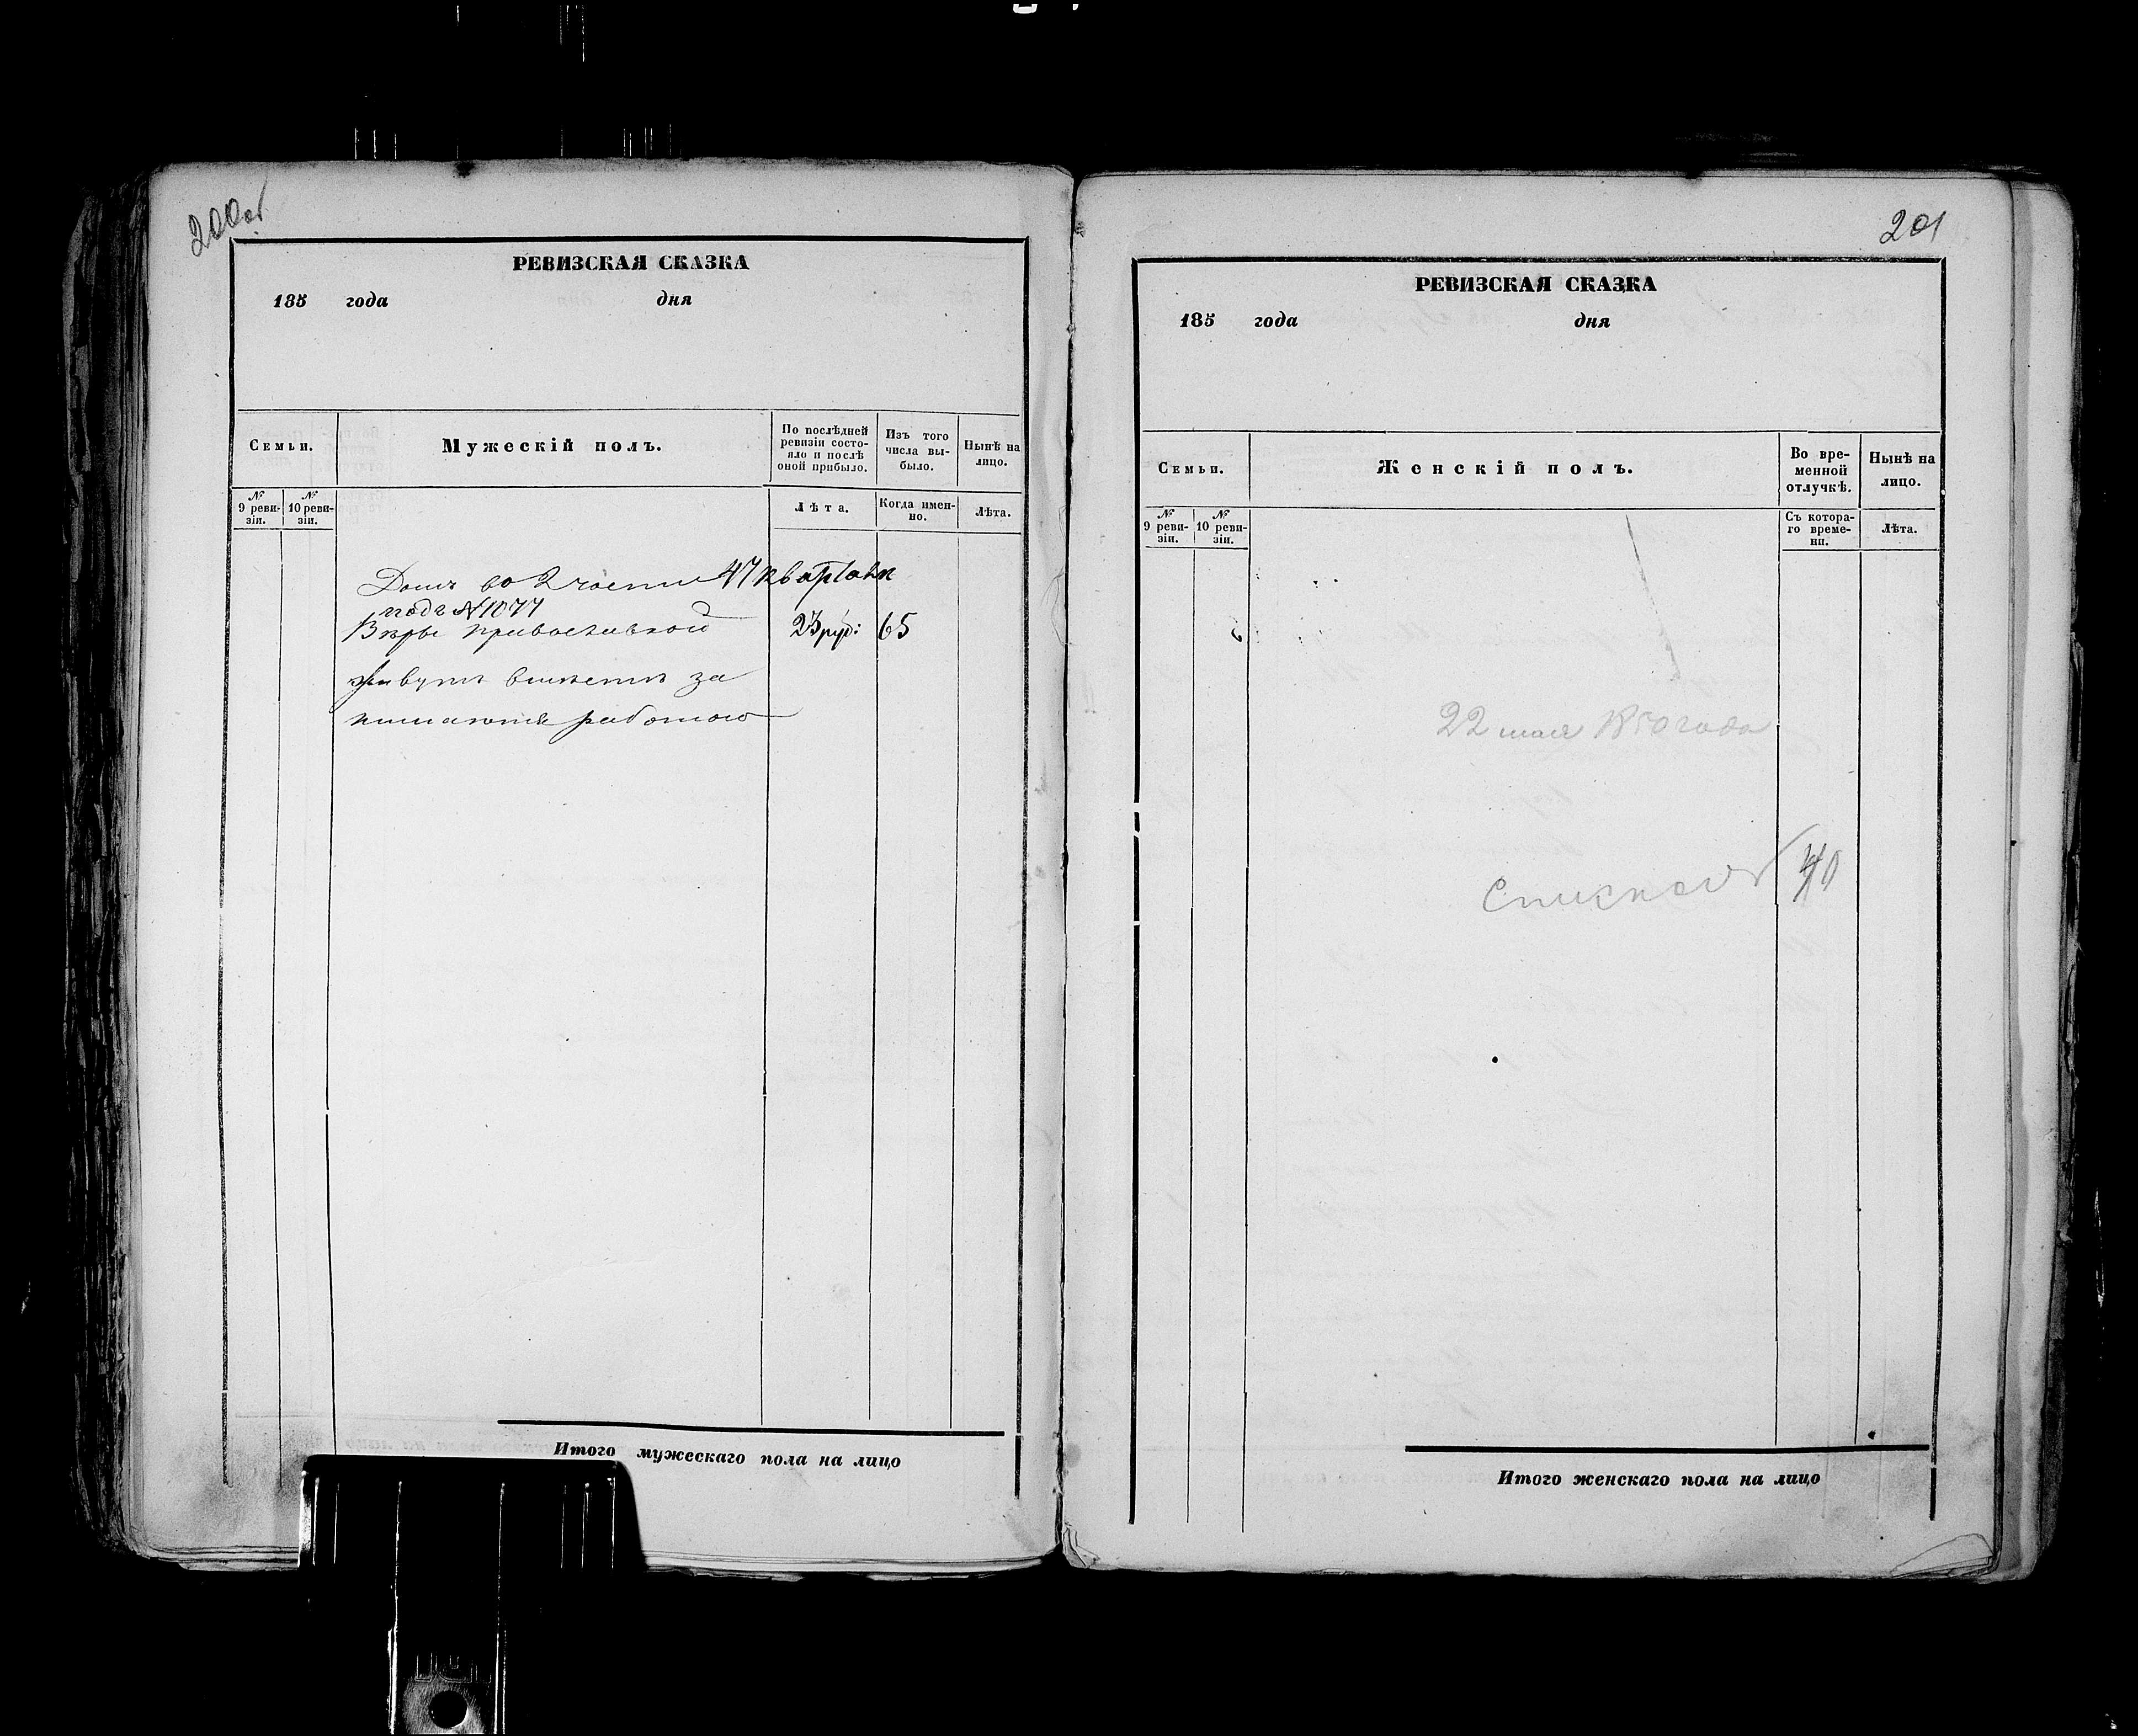 200об
РЕВИЗСКАЯ СКАЗКА
185 года дня
Семьи.
Мужескій полъ.
По послѣдней ревизіи состо-
яло и послѣ
оной прибыло.
Изъ того
числа вы-
было.
Нынѣ на
лицо.
№
9 реви-
зіи.
№
10 реви-
зіи.
Лѣта.
Когда имен-
но.
Лѣта.
Домъ во 2 части 47 квартала
подъ № 1077
Вѣры православной 23 руб: 65
живутъ вмѣстѣ за
нимаются работою
Итого мужескаго пола на лицо
201
РЕВИЗСКАЯ СКАЗКА
185 года дня
Семьи.
Женскій полъ.
Во вре-
менной
отлучкѣ.
Нынѣ на
лицо.
№
9 реви-
зіи.
№
10 реви-
зіи.
Съ котора-
го време-
ни.
Лѣта.
22 мая 1850 года
Итого женскаго пола на лицо